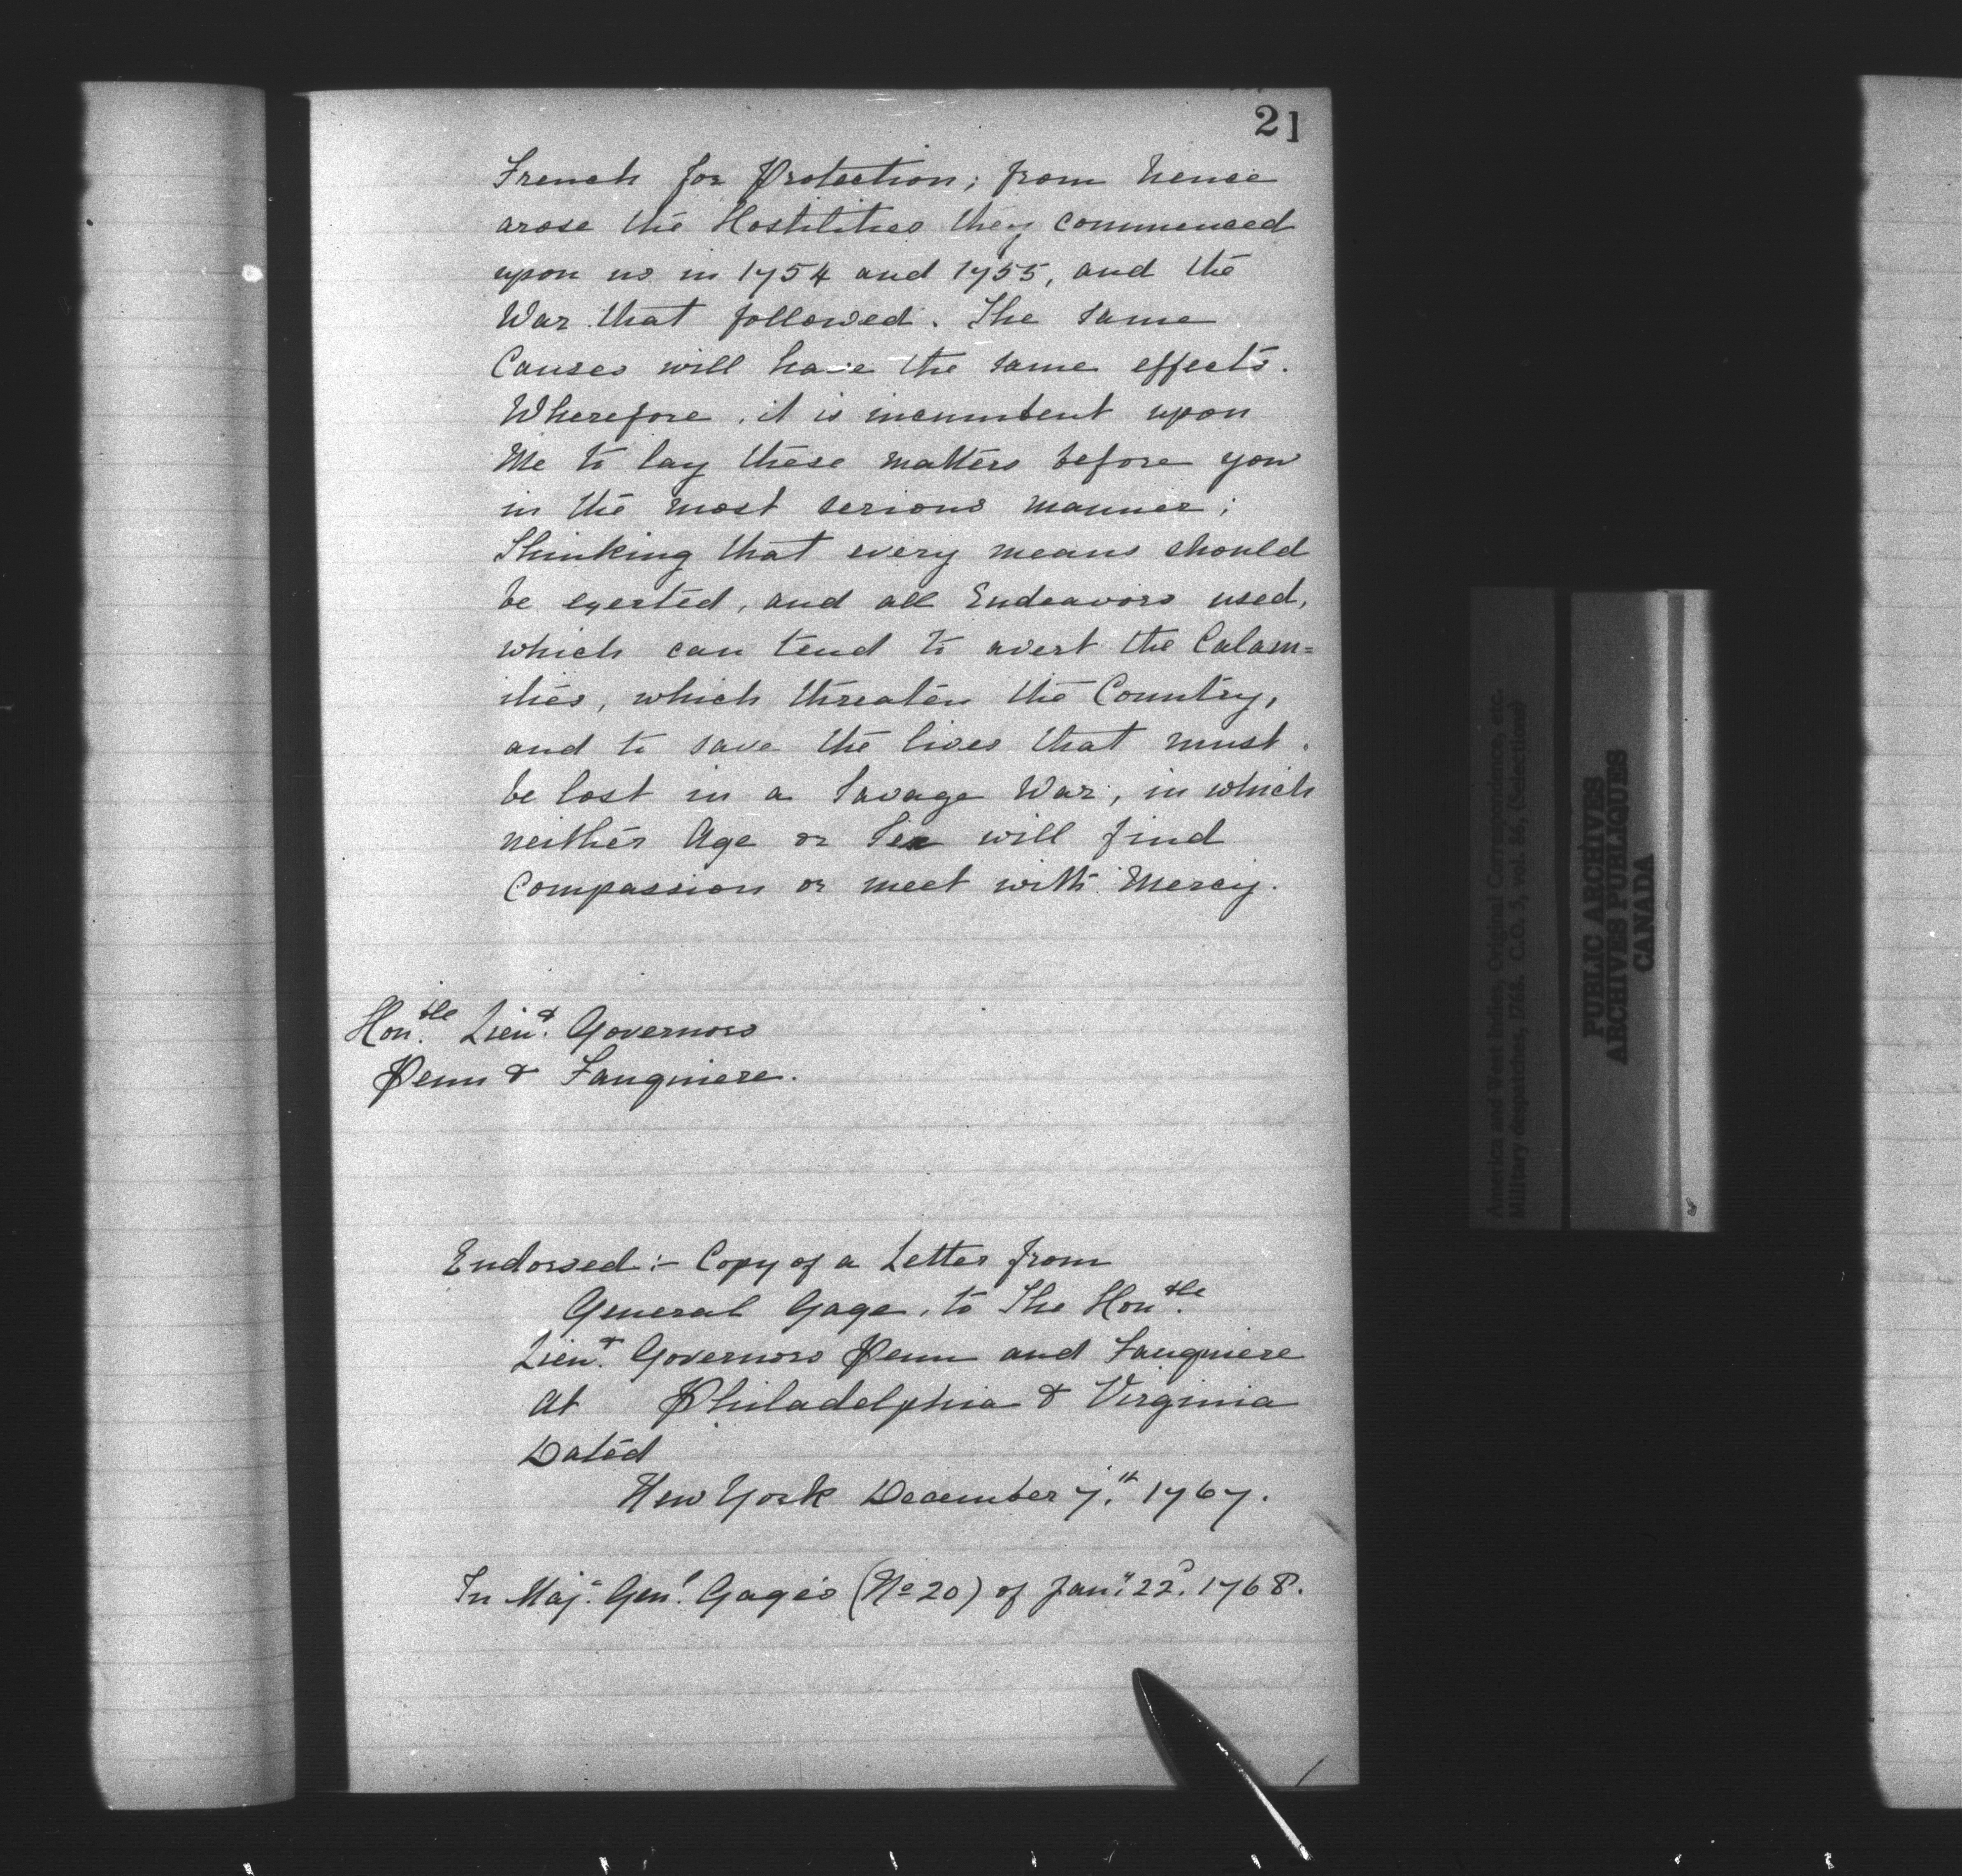 21
French for Protection; from hence
arose the Hostilities they commenced
upon us in 1754 and 1755, and the
War that followed. The same
Causes will have the same effects.
Wherefore, it is incumbent upon
Me to lay these matters before you
in the most serious manner;
Thinking that every means should
be exerted, and all Endeavors used,
which can tend to avert the Calam=
ities, which threaten the Country,
and to save the lives that must
be lost in a Savage War, in which
neither Age or Sex will find
Compassion or meet with Mercy.
Hon.ble Lieu.t Governors
Penn & Fauquiere.
Endorsed:- Copy of a Letter from
General Gage, to The Hon.ble
Lieu.t Governors Penn and Fauquiere
At Philadelphia & Virginia
Dated
New York December 7.th 1767.
In Maj.r Gen.l Gage's (No 20) of Jan.y 22.d 1768.
America and West Indies, Original Correspondence, etc.
Military despatches, 1768. C.O. 5, vol. 86, (Selections)
PUBLIC ARCHIVES
ARCHIVES PUBLIQUES
CANADA